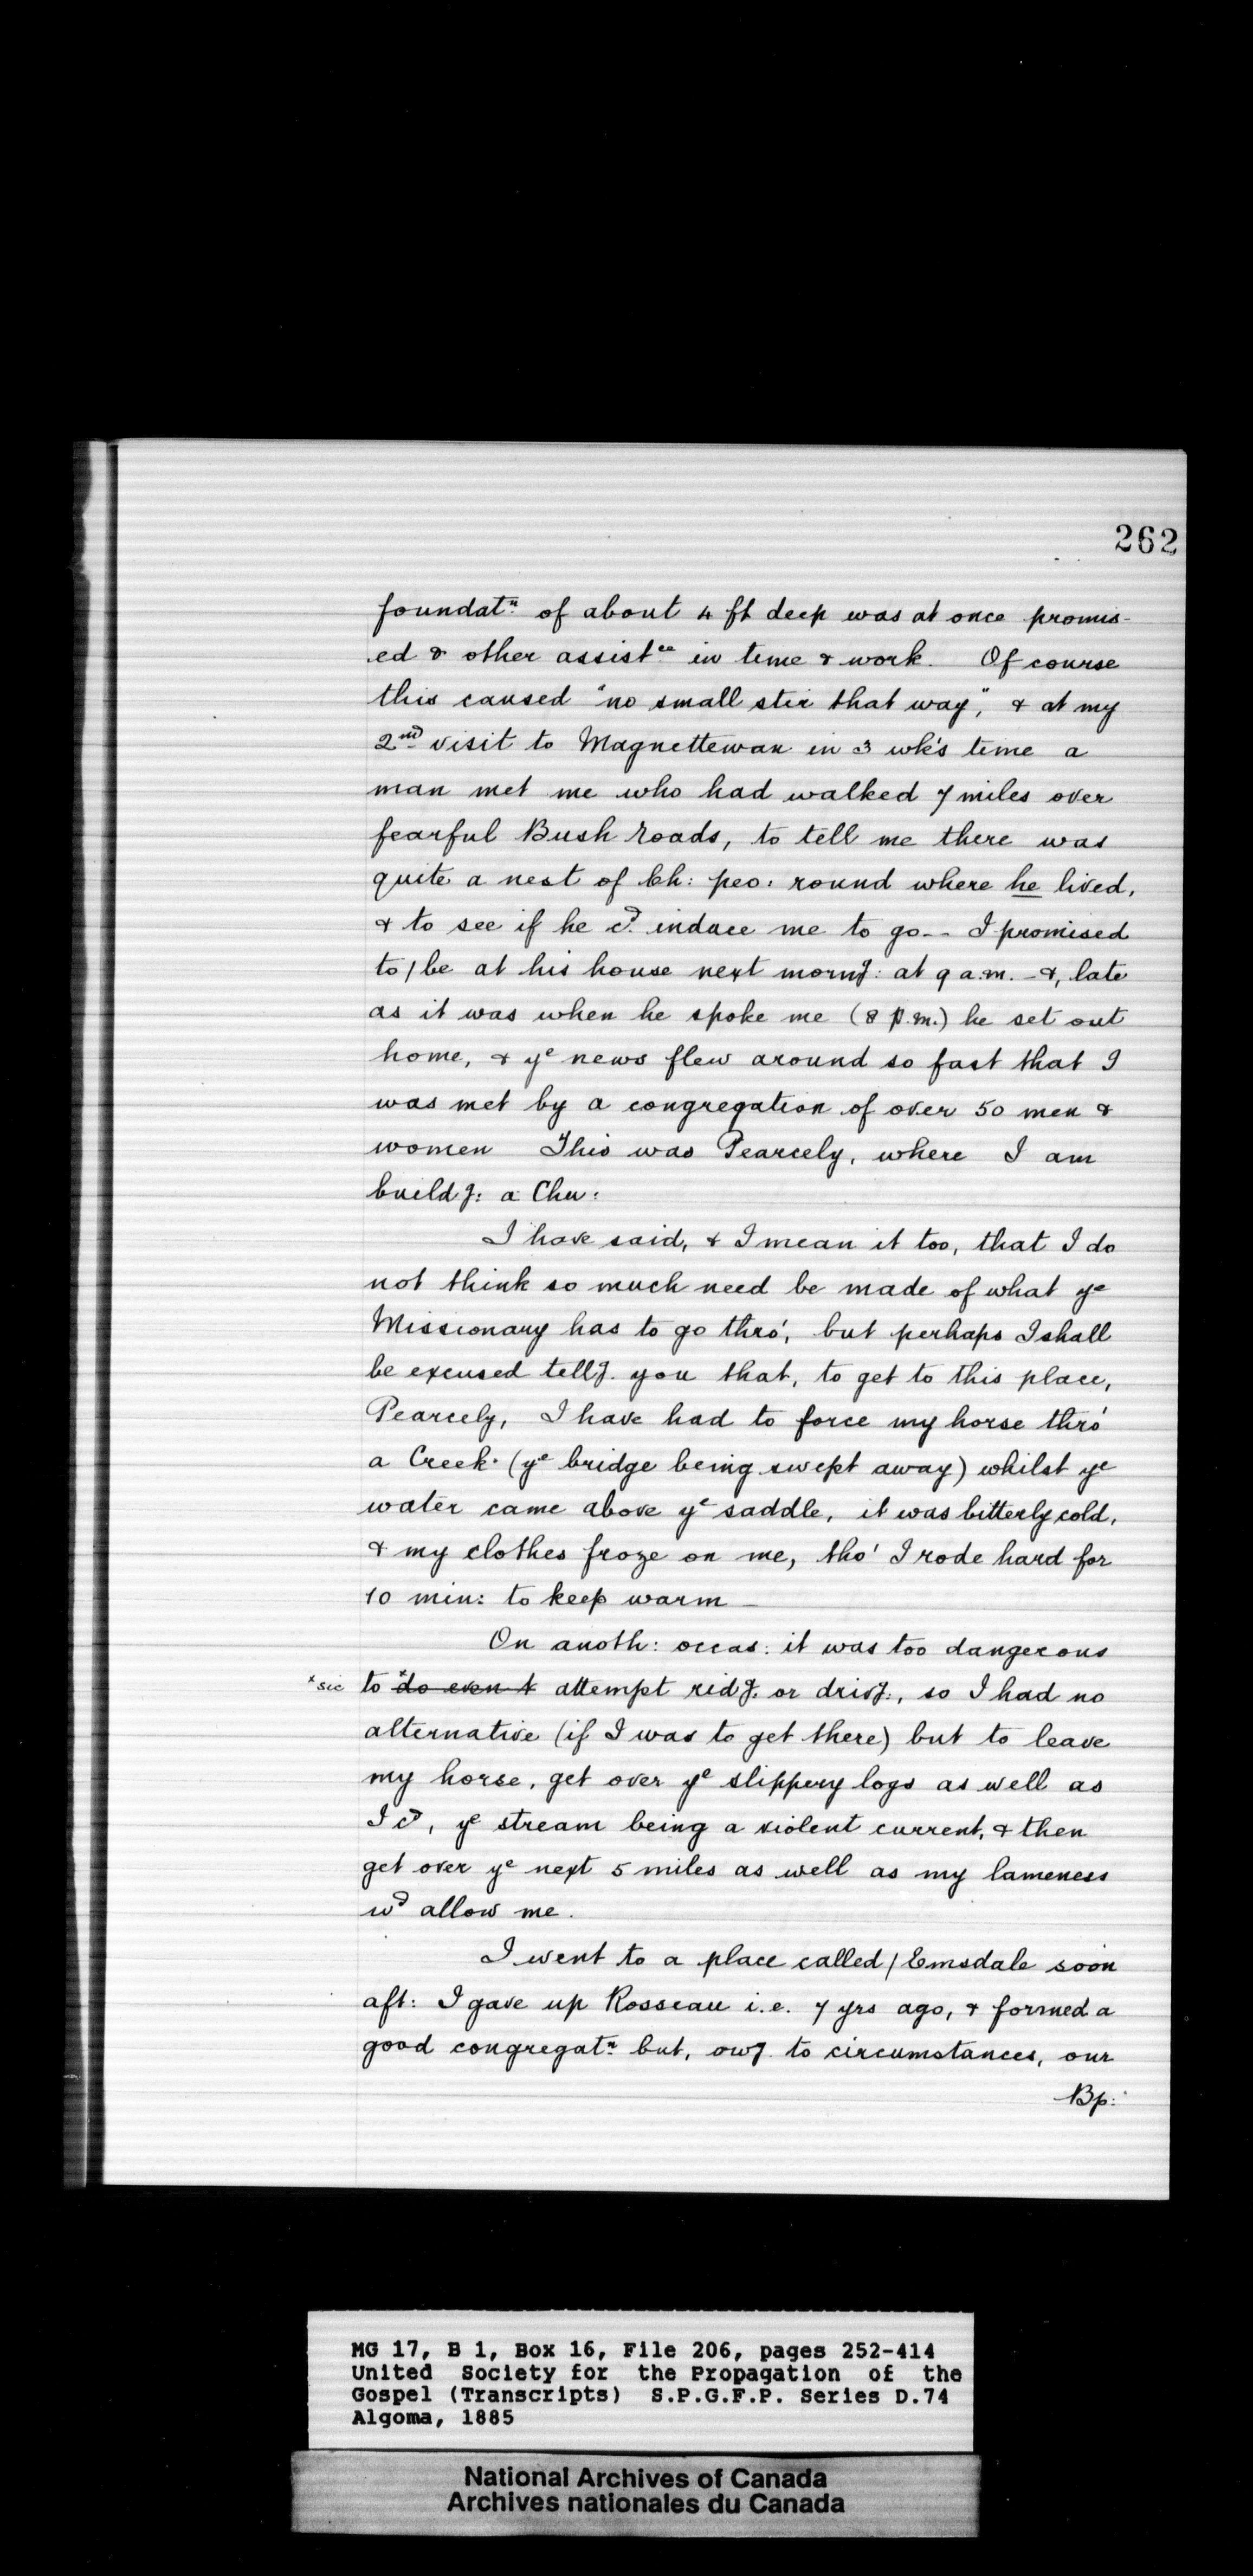 262
foundatⁿ. of about 4 ft deep was at once promis-
ed & other assistᶜᵉ in time & work. Of course
this caused "no small stir that way", & at my
2ⁿᵈ visit to Magnettewan in 3 wk's time a
man met me who had walked 7 miles over
fearful Bush roads, to tell me there was
quite a nest of Ch: peo: round where he lived,
& to see if he cᵈ. induce me to go-- I promised
to/be at his house next morng: at 9 a.m. - &, late
as it was when he spoke me (8 p.m.) he set out
home, & yᵉ news flew around so fast that I
was met by a congregation of over 50 men &
women This was Pearcely, where I am
buildg: a Chu:
I have said, & I mean it too, that I do
not think so much need be made of what yᵉ
Missionary has to go thro', but perhaps I shall
be excused tellg. you that, to get to this place,
Pearcely, I have had to force my horse thro'
a Creek. (yᵉ bridge being swept away) whilst yᵉ
water came above yᵉ saddle, it was bitterly cold,
& my clothes froze on me, tho' I rode hard for
10 min: to keep warm —
On anoth: occas: it was too dangerous
*sic to *do even t attempt ridg. or drivg:, so I had no
alternative (if I was to get there) but to leave
my horse, get over yᵉ slippery logs as well as
I cᵈ, yᵉ stream being a violent current, & then
get over yᵉ next 5 miles as well as my lameness
wᵈ allow me.
I went to a place called / Emsdale soon
aft: I gave up Rosseau i.e. 7 yrs ago, & formed a
good congregatⁿ. but, owg. to circumstances, our
Bp:
MG 17, B 1, Box 16, File 206, pages 252-414
United Society for the Propagation of the
Gospel (Transcripts) S.P.G.F.P. Series D.74
Algoma, 1885
National Archives of Canada
Archives nationales du Canada